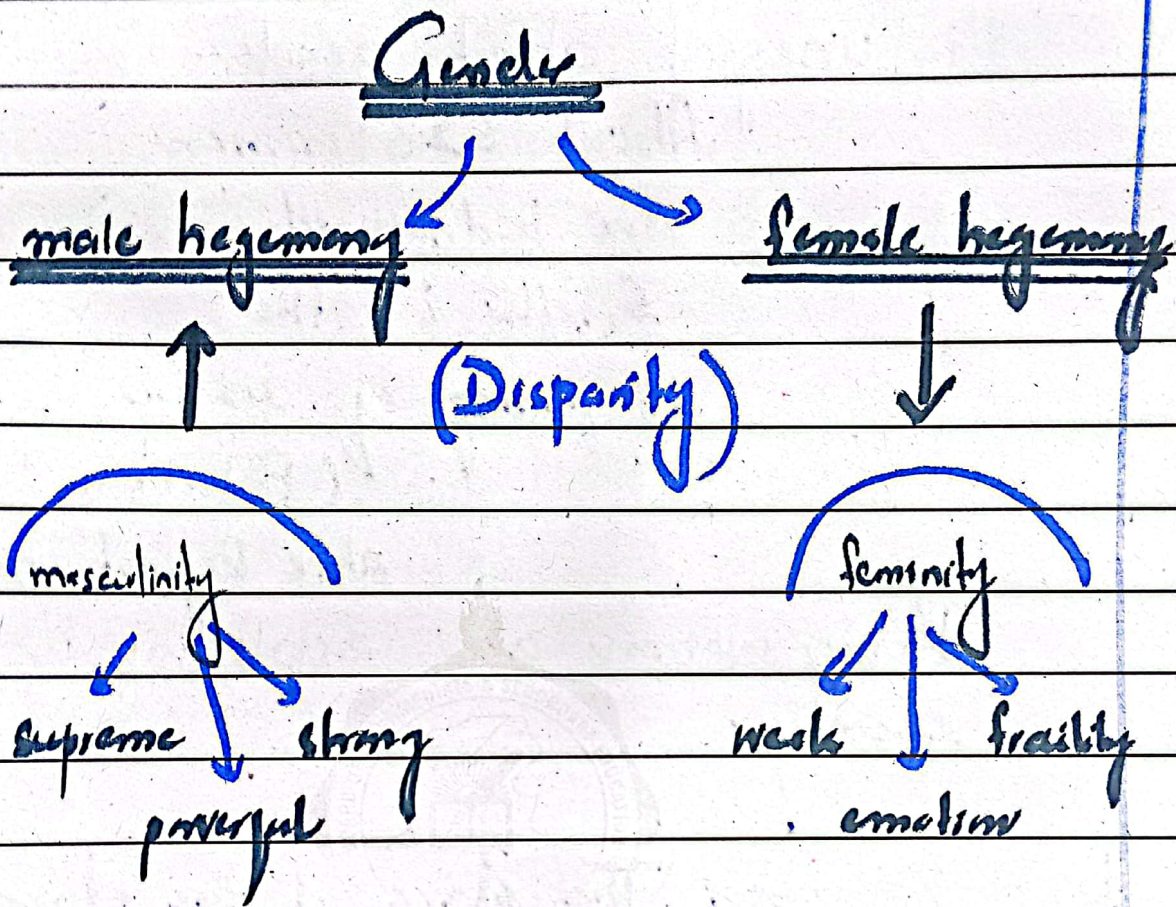 Gender
male hegemony female hegemony
(Disparity)
masculinity feminity
supreme strong weak fraility
powerful emotion